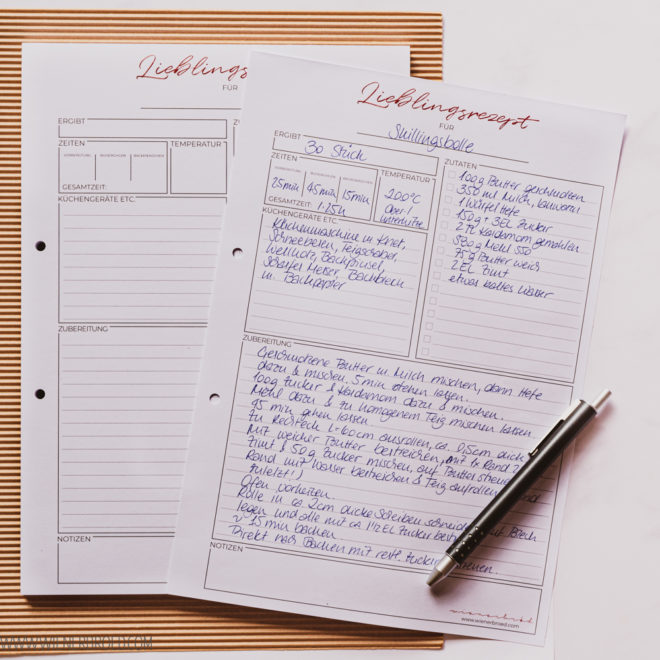 Lieblings
FÜR
ERGIBT
ZEITEN
TEMPERATUR
VORBEREITUNG
RUHEN/GEHEN
BACKEN/KOCHEN
GESAMTZEIT:
KÜCHENGERÄTE ETC.
ZUBEREITUNG
NOTIZEN
Lieblingsrezept
FÜR
Skillingsbolle
ERGIBT
30 Stück
ZEITEN
TEMPERATUR
25min 45min 15min
200°C
GESAMTZEIT: 1:25h
Ober-/
Unterhitze
KÜCHENGERÄTE ETC.
Küchenmaschine m. Knet,
Schneebesen, Teigschaber,
Wellholz, Backpinsel,
Scharfes Messer, Backblech
m. Backpapier
ZUTATEN
100g Butter geschmolzen
350 ml Milch, lauwarm
1 Würfel Hefe
150g + 3EL Zucker
2 TL Kardamom gemahlen
580g Mehl 550
75g Butter weich
2 EL Zimt
etwas kaltes Wasser
ZUBEREITUNG
Geschmolzene Butter m. Milch mischen, dann Hefe
dazu & mischen. 5 min stehen lassen.
100g Zucker & Kardamom dazu & mischen.
Mehl dazu & zu homogenem Teig mischen lassen.
45 min gehen lassen
Zu Rechteck L=60cm ausrollen, ca. 0,5cm dick
Mit weicher Butter bestreichen, mit 1x Rand 2
Zimt & 50g Zucker mischen, auf Butter streu
Rand mit Wasser bestreichen & Teig aufrollen
zuletzt!)
Ofen vorheizen
Rolle in ca. 2cm dicke Scheiben schneid auf Blech
legen und alle mit ca 1½ EL Zucker
15 min backen
Direkt nach Backen mit restl. Zucker
NOTIZEN
wienerbrød
www.wienerbroed.com